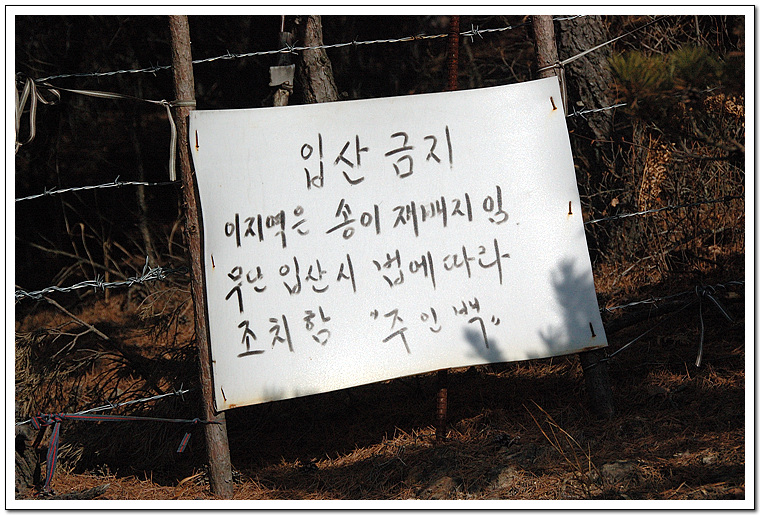 입산금지
이지역은 송이 재배지 임.
무단 입산시 법에 따라
조치함 "주인백"